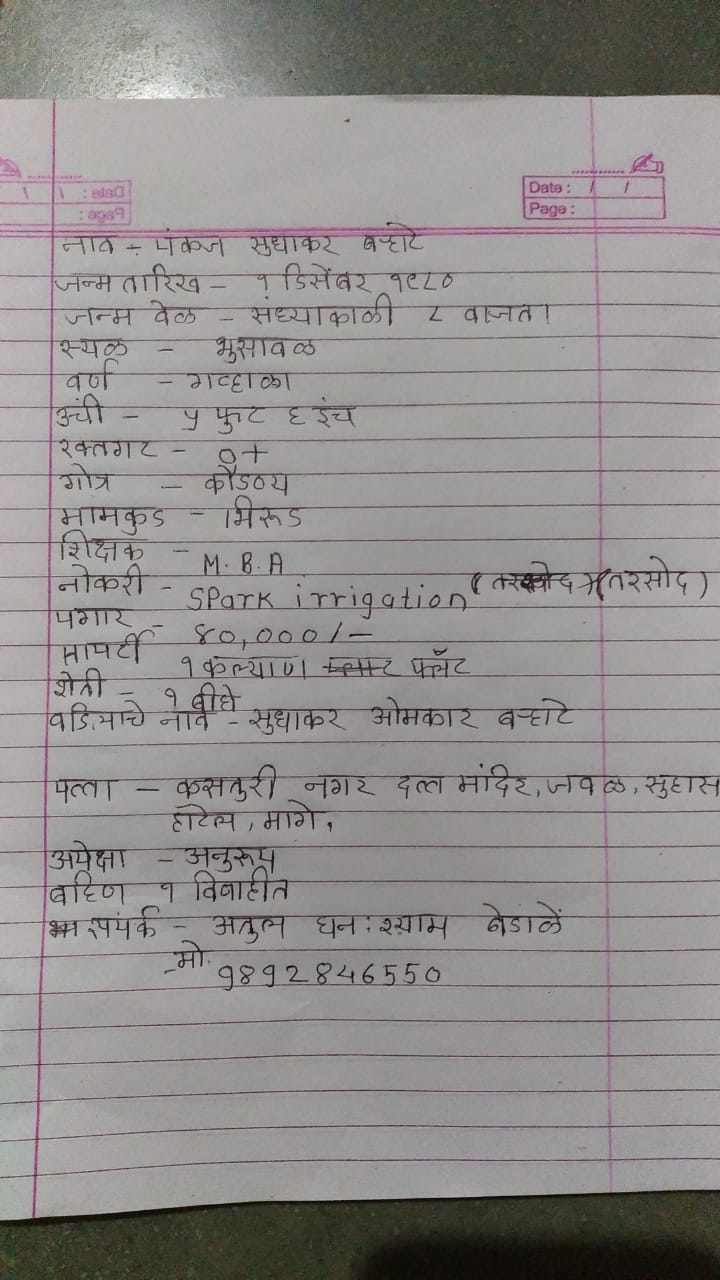 Date : / /
Page :
नाव - पंकज सुधाकर बऱ्हाटे
जन्म तारिख - १ डिसेंबर १९८०
जन्म वेळ - संध्याकाळी ८ वाजता
स्थळ - भुसावळ
वर्ण - गव्हाळा
उंची - ५ फुट ६ इंच
रक्तगट - O+
गोत्र - कौडण्य
मामकुड - भिरूड
शिक्षक - M.B.A
नोकरी - Spark irrigation (तरसोद)
पगार - ४०,०००/-
प्रापर्टी १ कल्याण फ्लॅट
शेती - १ बीघे
वडिलाचे नाव - सुधाकर ओमकार बऱ्हाटे
पत्ता - कसतुरी नगर दत्त मंदिर, जवळ, सुहास
हाटेल, मागे,
अपेक्षा - अनुरूप
बहिण १ विवाहीत
संपर्क - अतुल घन:श्याम बेंडाळें
-मो. 9892846550